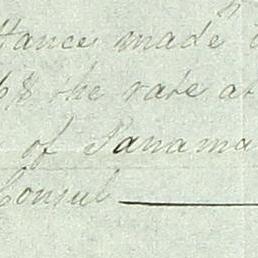 ttance made
68 the rate at
of Panama
Consul